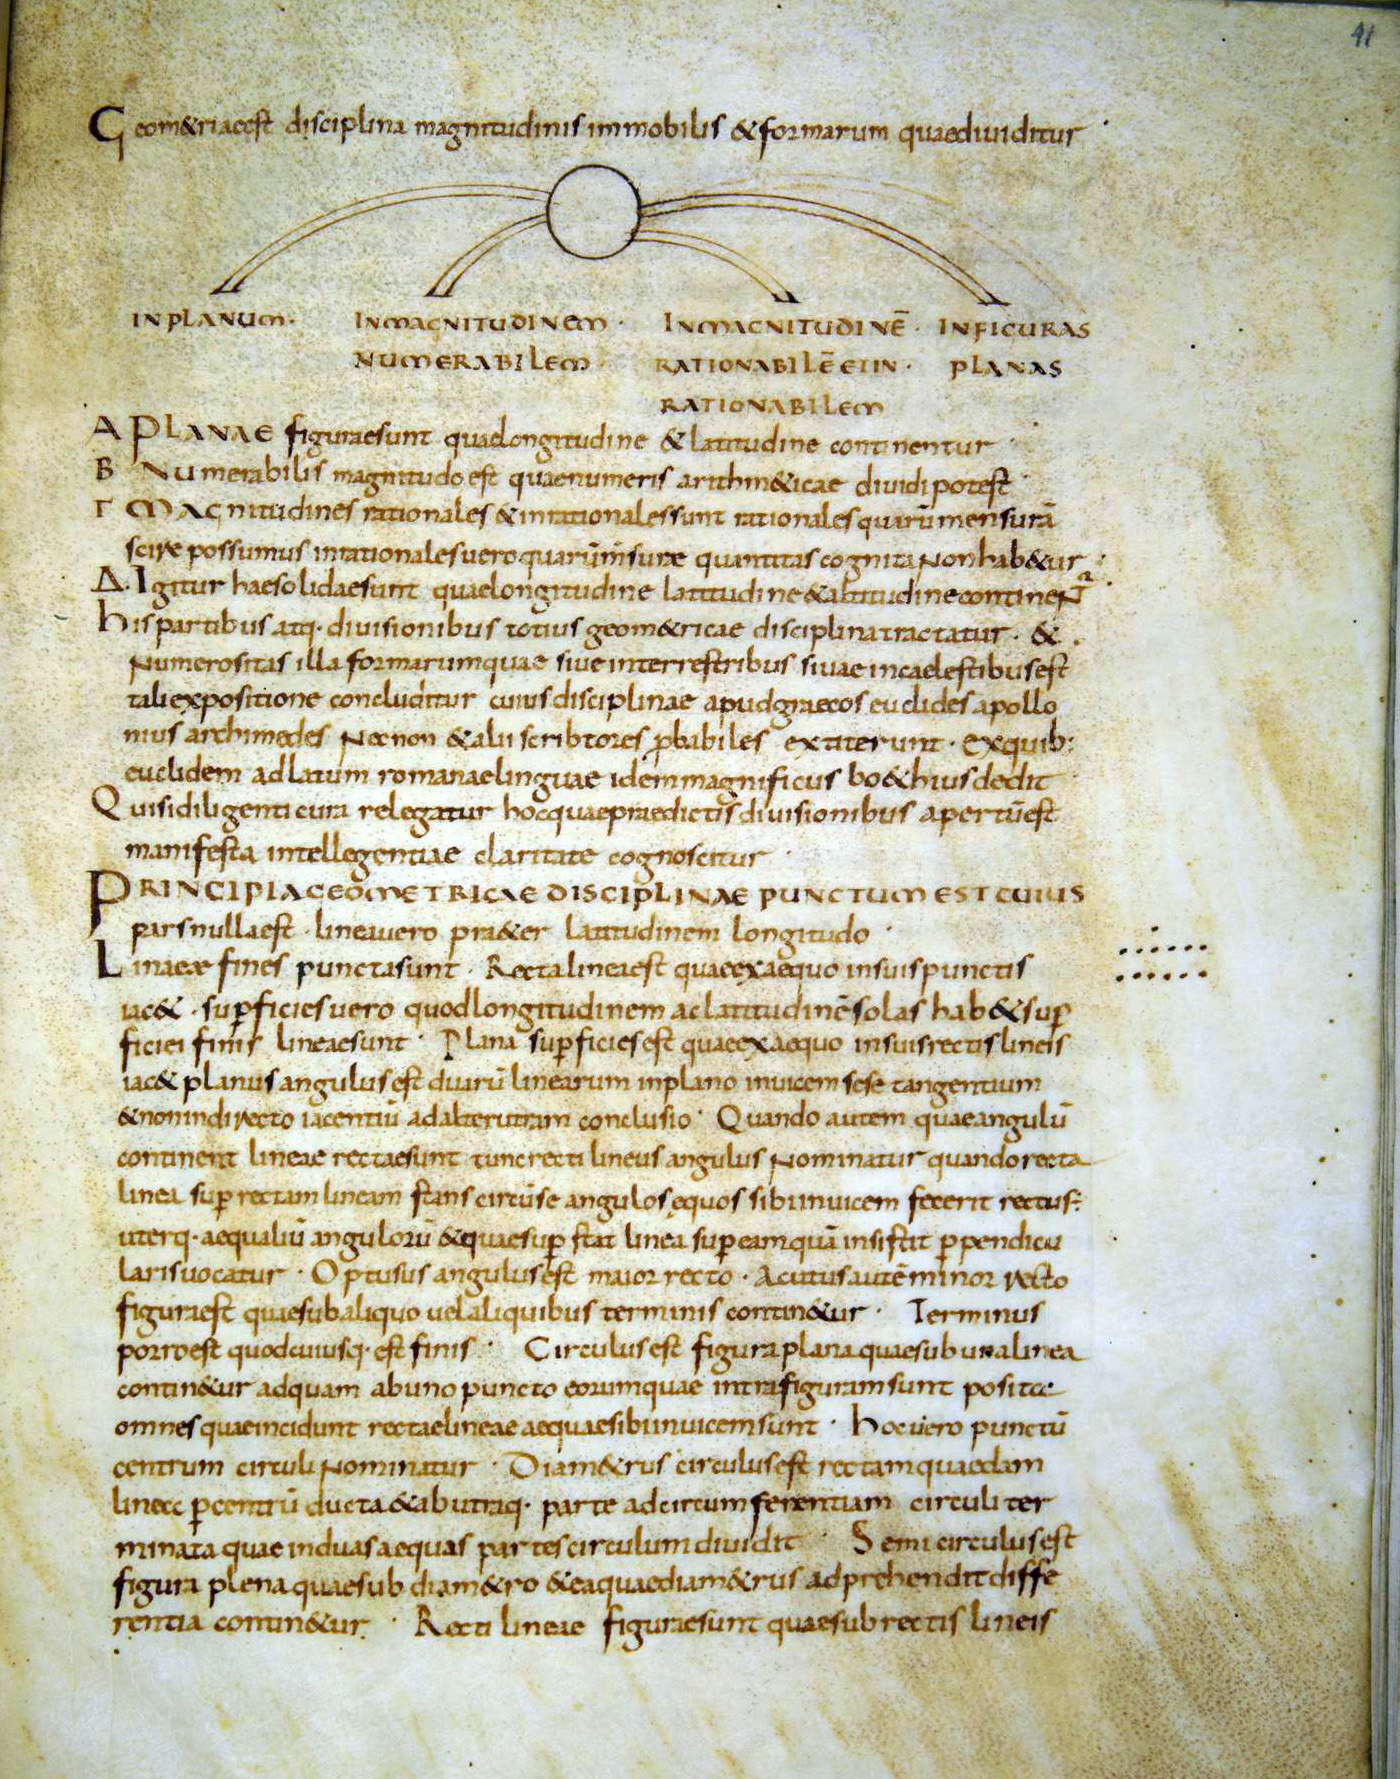 41
Geom&riaeest disciplina magnitudinis immobilis & formarum quaediuiditur
INPLANUM· INMAGNITUDINEM· INMAGNITUDINĒ· INFIGURAS
NUMERABILEM· RATIONABILĒETIN· PLANAS
RATIONABILEM
A PLANAE figuraesunt quaelongitudine & latitudine continentur·
B Numerabilis magnitudo est quaenumeris arithm&icae diuidi potest
Γ MAGnitudines rationales & inrationalessunt rationales quarū mensurā
scire possumus inrationalesuero quarūmsurae quantitas cognita Non hab&ur·
Δ· Igitur haesolidaesunt quaelongitudine latitudine & altitudine contineNt̄
hispartibus atq· diuisionibus totius geom&ricae disciplina tractatur· &·
Numerositas illa formarumquae siue interrestribus siuae incaelestibusest
taliexpositione concluditur cuiusdisciplinae apudgraecos euclides apollo
nius archimedes Necnon & alii scribtores ꝓbabiles extiterunt· exquib:
euclidem adlatum romanaelinguae idem magnificus bo&hius dedit
Quisidiligenti cura relegatur hocquaepraedictis diuisionibus apertūest
manifesta intellegentiae claritate cognoscitur·
PRINCIPIAGEOMETRICAE DISCIPLINAE PUNCTUM EST CUIUS
parsnullaest· lineauero pra&er latitudinem longitudo·
Lineae fines punctasunt· Rectalineaest quaeexaequo insuispunctis
iac&· suꝑficiesuero quodlongitudinem aclatitudinēsolas hab& suꝑ
ficiei finis lineaesunt· Plana suꝑficiesest quaeexaequo insuisrectislineis
iac& planus angulusest duurū linearum inplano inuicem sese tangentium
& nonindirecto iacentiū adalterutram conclusio· Quando autem quaeangulū
continent lineae rectaesunt tuncrecti lineus angulus Nominatur quandorecta
linea suꝑ rectam lineam stans circūse angulos ęquos sibiinuicem fecerit rectus:
uterq· aequaliū angulorū & quaesuꝑ stat linea suꝑeamquā insistit ꝑpendicu
larisuocatur· Optusus angulusest maior recto· Acutus autē minor recto
figuraest quaesubaliquo uelaliquibus terminis contin&ur· Terminus
porroest quodcuiusq· est finis· Circulusest figuraplana quaesub unalinea
contin&ur adquam abuno puncto eorumquae intrafiguramsunt positae
omnes quaeincidunt rectaelineae aequaesibiinuicemsunt· hoc uero punctū
centrum circuli Nominatur· Diam&rus circulusest rectamquaedam
lineae ꝑcentrū ducta & abutraq· parte adcircumferentiam circuli ter
minata quae induas aequas partescirculum diuidit· Semi circulusest
figura plena quaesub diam&ro & eaquaediam&rus adprehendit diffe
rentia contin&ur· Recti lineae figuraesunt quaesub rectis lineis